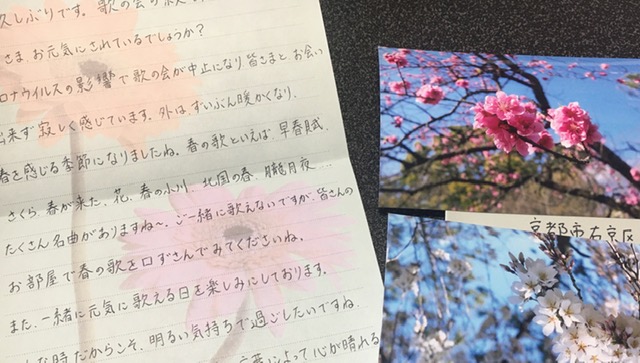 久しぶりです。歌の会の
さま、お元気にされているでしょうか？
ロナウイルスの影響で歌の会が中止になり皆さまと、お会い
出来ず寂しく感じています。外は、ずいぶん暖かくなり、
春を感じる季節になりましたね。春の歌といえば、早春賦、
さくら、春が来た、花、春の小川、北国の春、朧月夜…
たくさん名曲がありますね〜。ご一緒に歌えないですが、皆さんの
お部屋で春の歌を口ずさんでみてくださいね。
また、一緒に元気に歌える日を楽しみにしております。
な時だからこそ、明るい気持ちで過ごしたいですね。
によって心が晴れる
京都市右京区